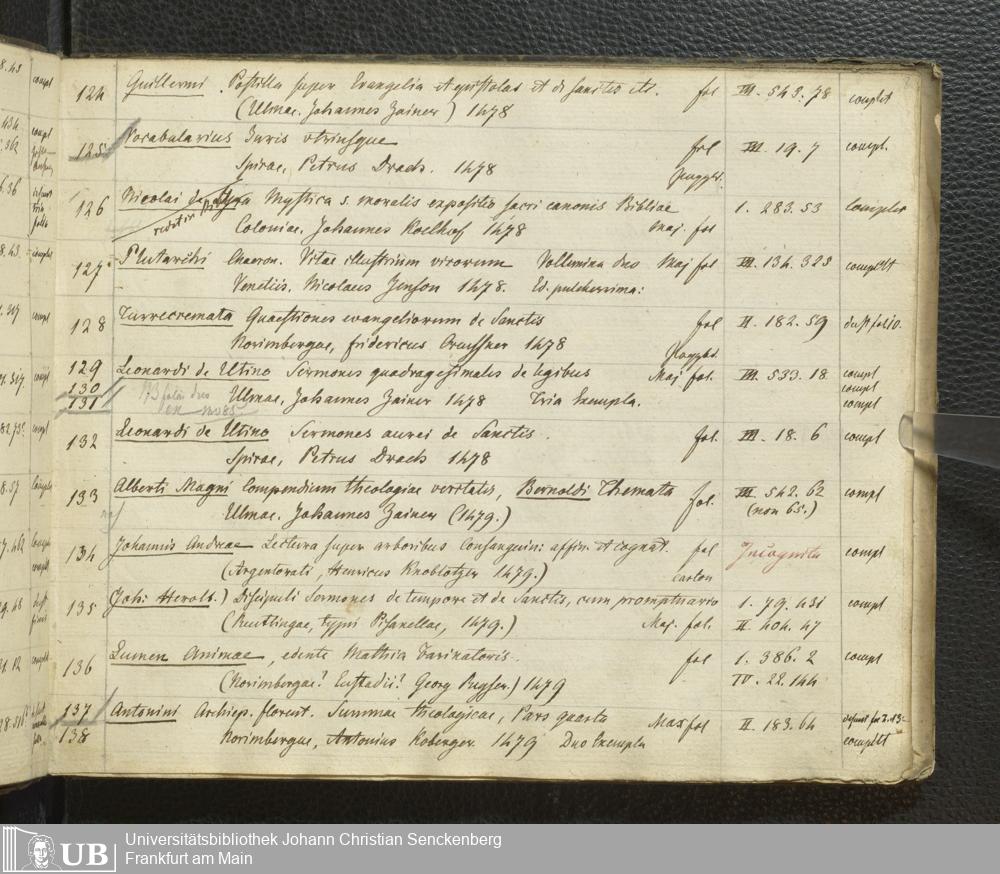 124 Guillermi. Postilla super Evangelia et epistolas et de sanctis etc. fol III. 543. 78 complet
(Ulmae. Johannes Zainer) 1478
125 Vocabularius Juris utriusque fol III. 19. 7 compl.
Spirae, Petrus Drach. 1478
126 Nicolai de Lyra Mystica s. moralis expositio sacri canonis Bibliae 1. 283. 53 complet
Coloniae. Johannes Koelhof 1478 Maj. fol
127 Plutarchi Chaeron. Vitae illustrium virorum Vollumina duo Maj fol III. 134. 325 complett
Venetiis, Nicolaus Jenson 1478. Ed. pulcherrima:
128 Turrecremata Quaestiones evangeliorum de Sanctis fol II. 182. 59
Norimbergae, fridericus Creussner 1478
129 Leonardi de Utino Sermones quadragesimales de legibus Maj fol. III. 533. 18 compl
130 compl
131 Ulmae, Johannes Zainer 1478 Tria Exempla. compl
132 Leonardi de Utino Sermones aurei de Sanctis. fol. III. 18. 6 compl
Spirae, Petrus Drach 1478
133 Alberti Magni Compendium theologiae veritatis, Bernoldi Themata fol. III. 542. 62 compl
Ulmae. Johannes Zainer (1479.) (non 65.)
134 Johannis Andreae Lectura super arboribus Consanguin: affin. et cognat. fol Incognita compl
(Argentorati, Henricus Knoblotzer 1479.) carton
135 (Joh: Herolt.) Discipuli Sermones de tempore et de Sanctis, cum promptuario 1. 79. 431 compl
(Reutlingae, typis Pisanellae, 1479.) Maj. fol. II. 404. 47
136 Lumen Animae, edente Matthia Farinatoris. fol 1. 386. 2 compl
(Norimbergae? Eustadii? Georg Reyser.) 1479 IV. 22. 144
137 Antonini Archiep. florent. Summae theologicae, Pars quarta Max fol II. 183. 64
138 Norimbergae, Antonius Koberger. 1479 Duo Exempla complett
UB
Universitätsbibliothek Johann Christian Senckenberg
Frankfurt am Main